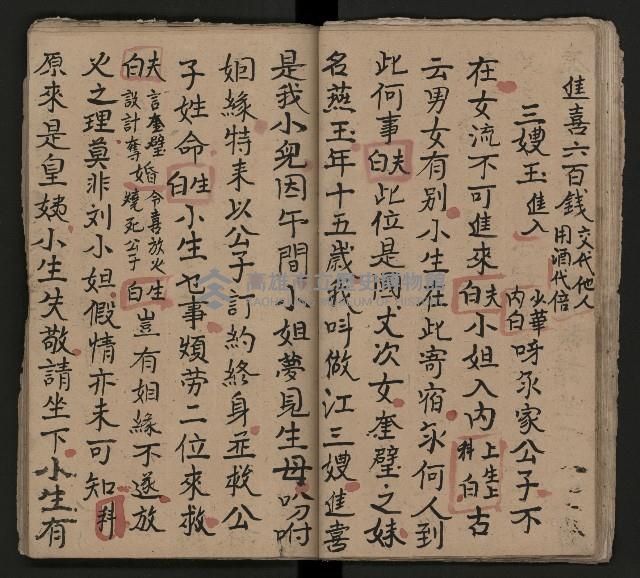 進喜六百錢交代他人用酒代倍
三嫂玉進入 少華內白 呀永家公子不
在女流不可進來 夫白 小姐入內 上生上科白 古
云男女有別小生在此寄宿永何人到
此何事 夫白 此位是丈次女奎璧之妹
名燕玉年十五歲叫做江三嫂進喜
是我小兒因午間小姐夢見生母吩咐
姻緣特來以公子訂約終身並救公
子姓命 生白 小生乜事煩劳二位來救
夫白 言奎璧婚令喜放火設計奪婚燒死公子 生白 豈有姻緣不遂放
火之理莫非刘小姐假情亦未可知 科
原來是皇姨小生失敬請坐下小生有
高雄市立歷史博物館